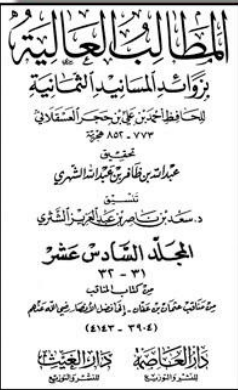 المطالب العالية
بزوائد المسانيد الثمانية
للحافظ أحمد بن علي بن حجر العسقلاني
٧٧٣ - ٨٥٢ هجرية
تحقيق
عبد الله بن ظافر بن عبد الله الشهري
تنسيق
د. سعد بن ناصر بن عبد العزيز الشثري
المجلد السادس عشر
٣١ - ٣٢
من كتاب المناقب
من مناقب عثمان بن عفان - إلى فضل الأنصار رضي الله عنهم
(٣٩٠٤ - ٤١٤٣)
دار العاصمة
للنشر والتوزيع
دار الغيث
للنشر والتوزيع